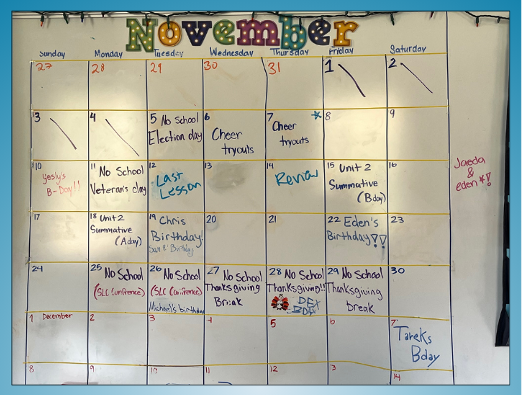 November
Sunday Monday Tuesday Wednesday Thursday Friday Saturday
27 28 29 30 31 1 2
3 4 5 No School 6 7 8 9
Election day Cheer Cheer
tryouts tryouts
10 11 No School 12 13 14 15 Unit 2 16
Yesly's Veteran's day Last Review Summative
B-Day!! Lesson (Bday)
Jaeda
&
eden*!
17 18 Unit 2 19 Chris 20 21 22 Eden's 23
Summative Birthday! Birthday!!
(Aday)
24 25 No School 26 No School 27 No School 28 No School 29 No School 30
(SLC Conference) (SLC Conference) Thanksgiving Thanksgiving!! Thanksgiving
Michael's birthday Break break
1 December 2 3 4 5 6 7
Tareks
Bday
8 9 10 11 12 14